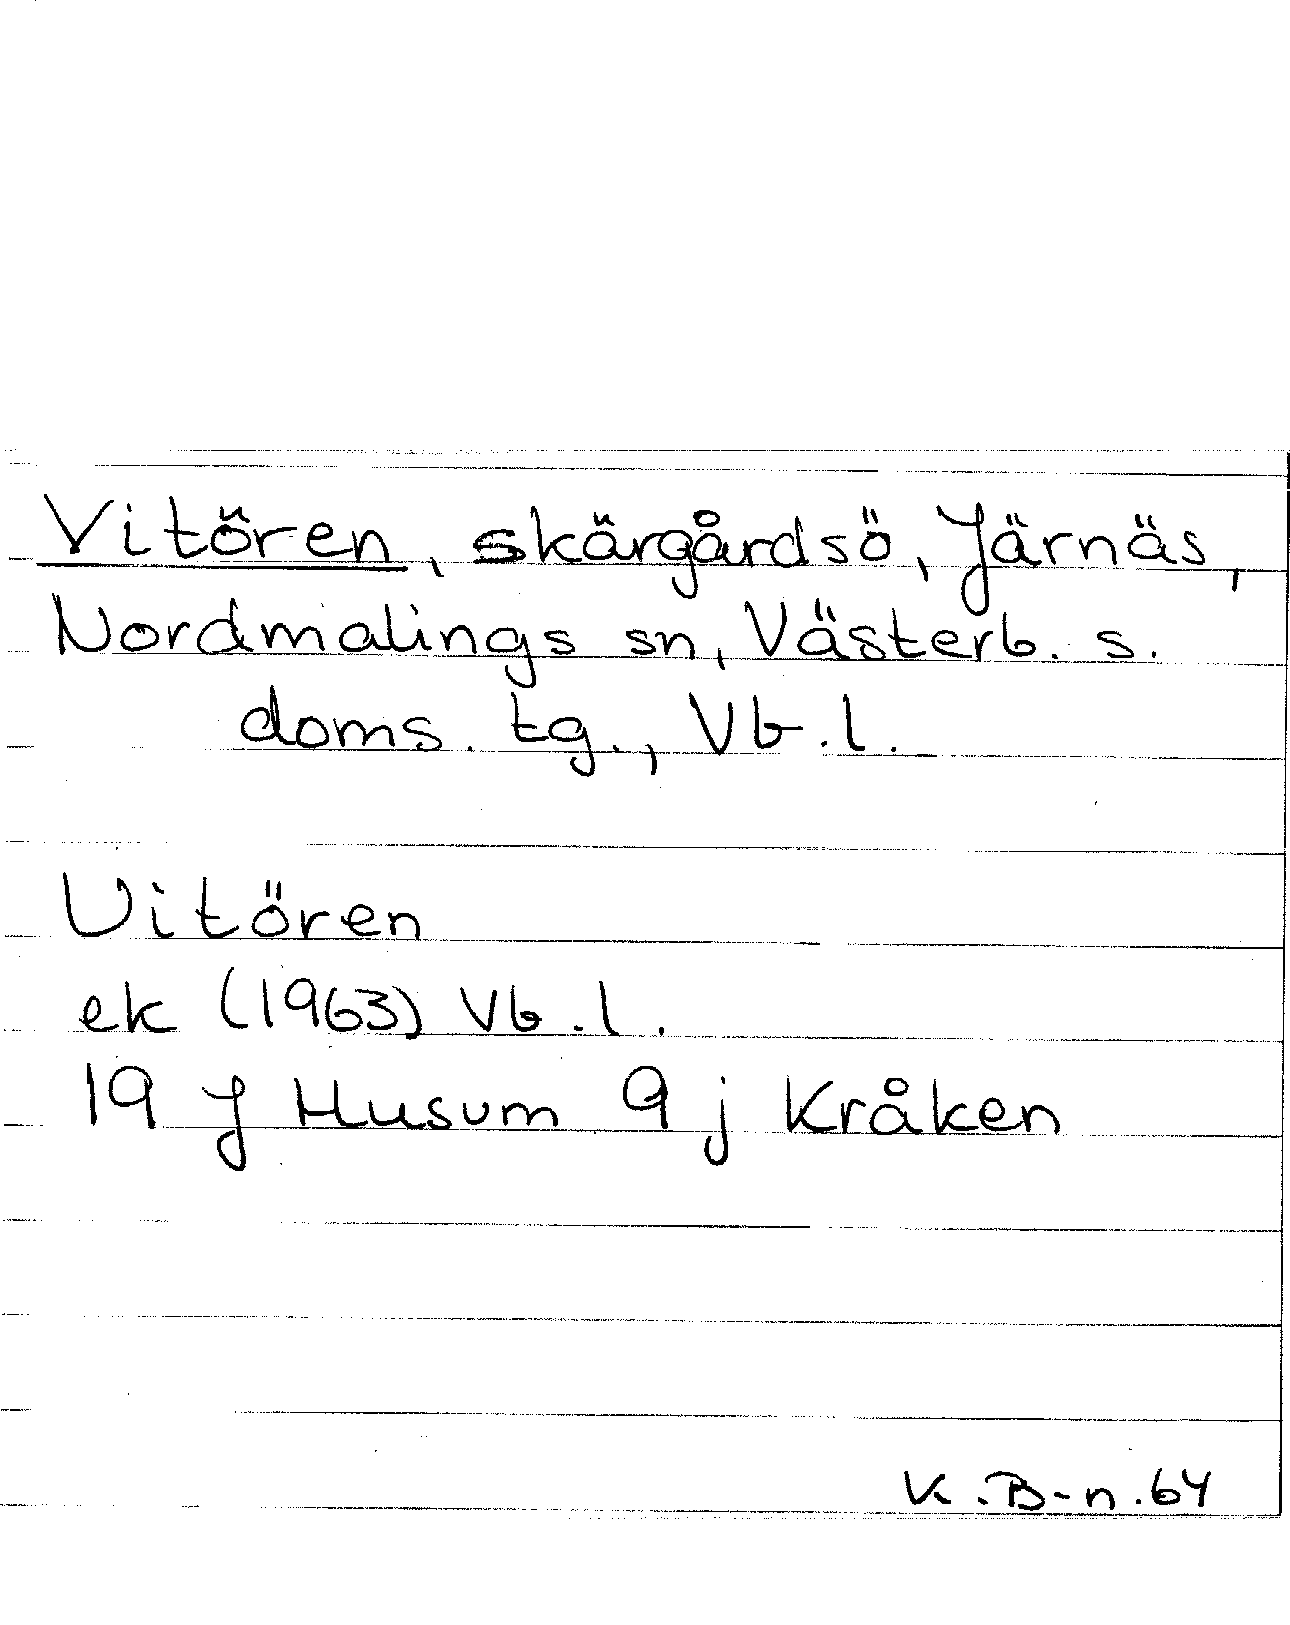 Vitören, skärgårdsö, Järnäs,
Nordmalings sn, Västerb. s.
doms. tg., Vb.l.
Vitören
ek (1963) Vb.l.
19 J Husum 9 j Kråken
K.B-n.64